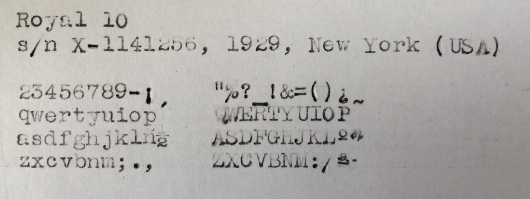 Royal 10
s/n X-1141256, 1929, New York (USA)
23456789-¡ ̦ "%?_!&=()¿~
qwertyuiop QWERTYUIOP
asdfghjklñ½ ASDFGHJKLº
zxcvbnm;., ZXCVBNM:/ª-